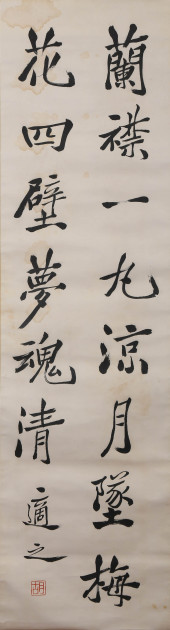 蘭襟一丸涼月墜梅
花四壁夢魂清
適之
胡